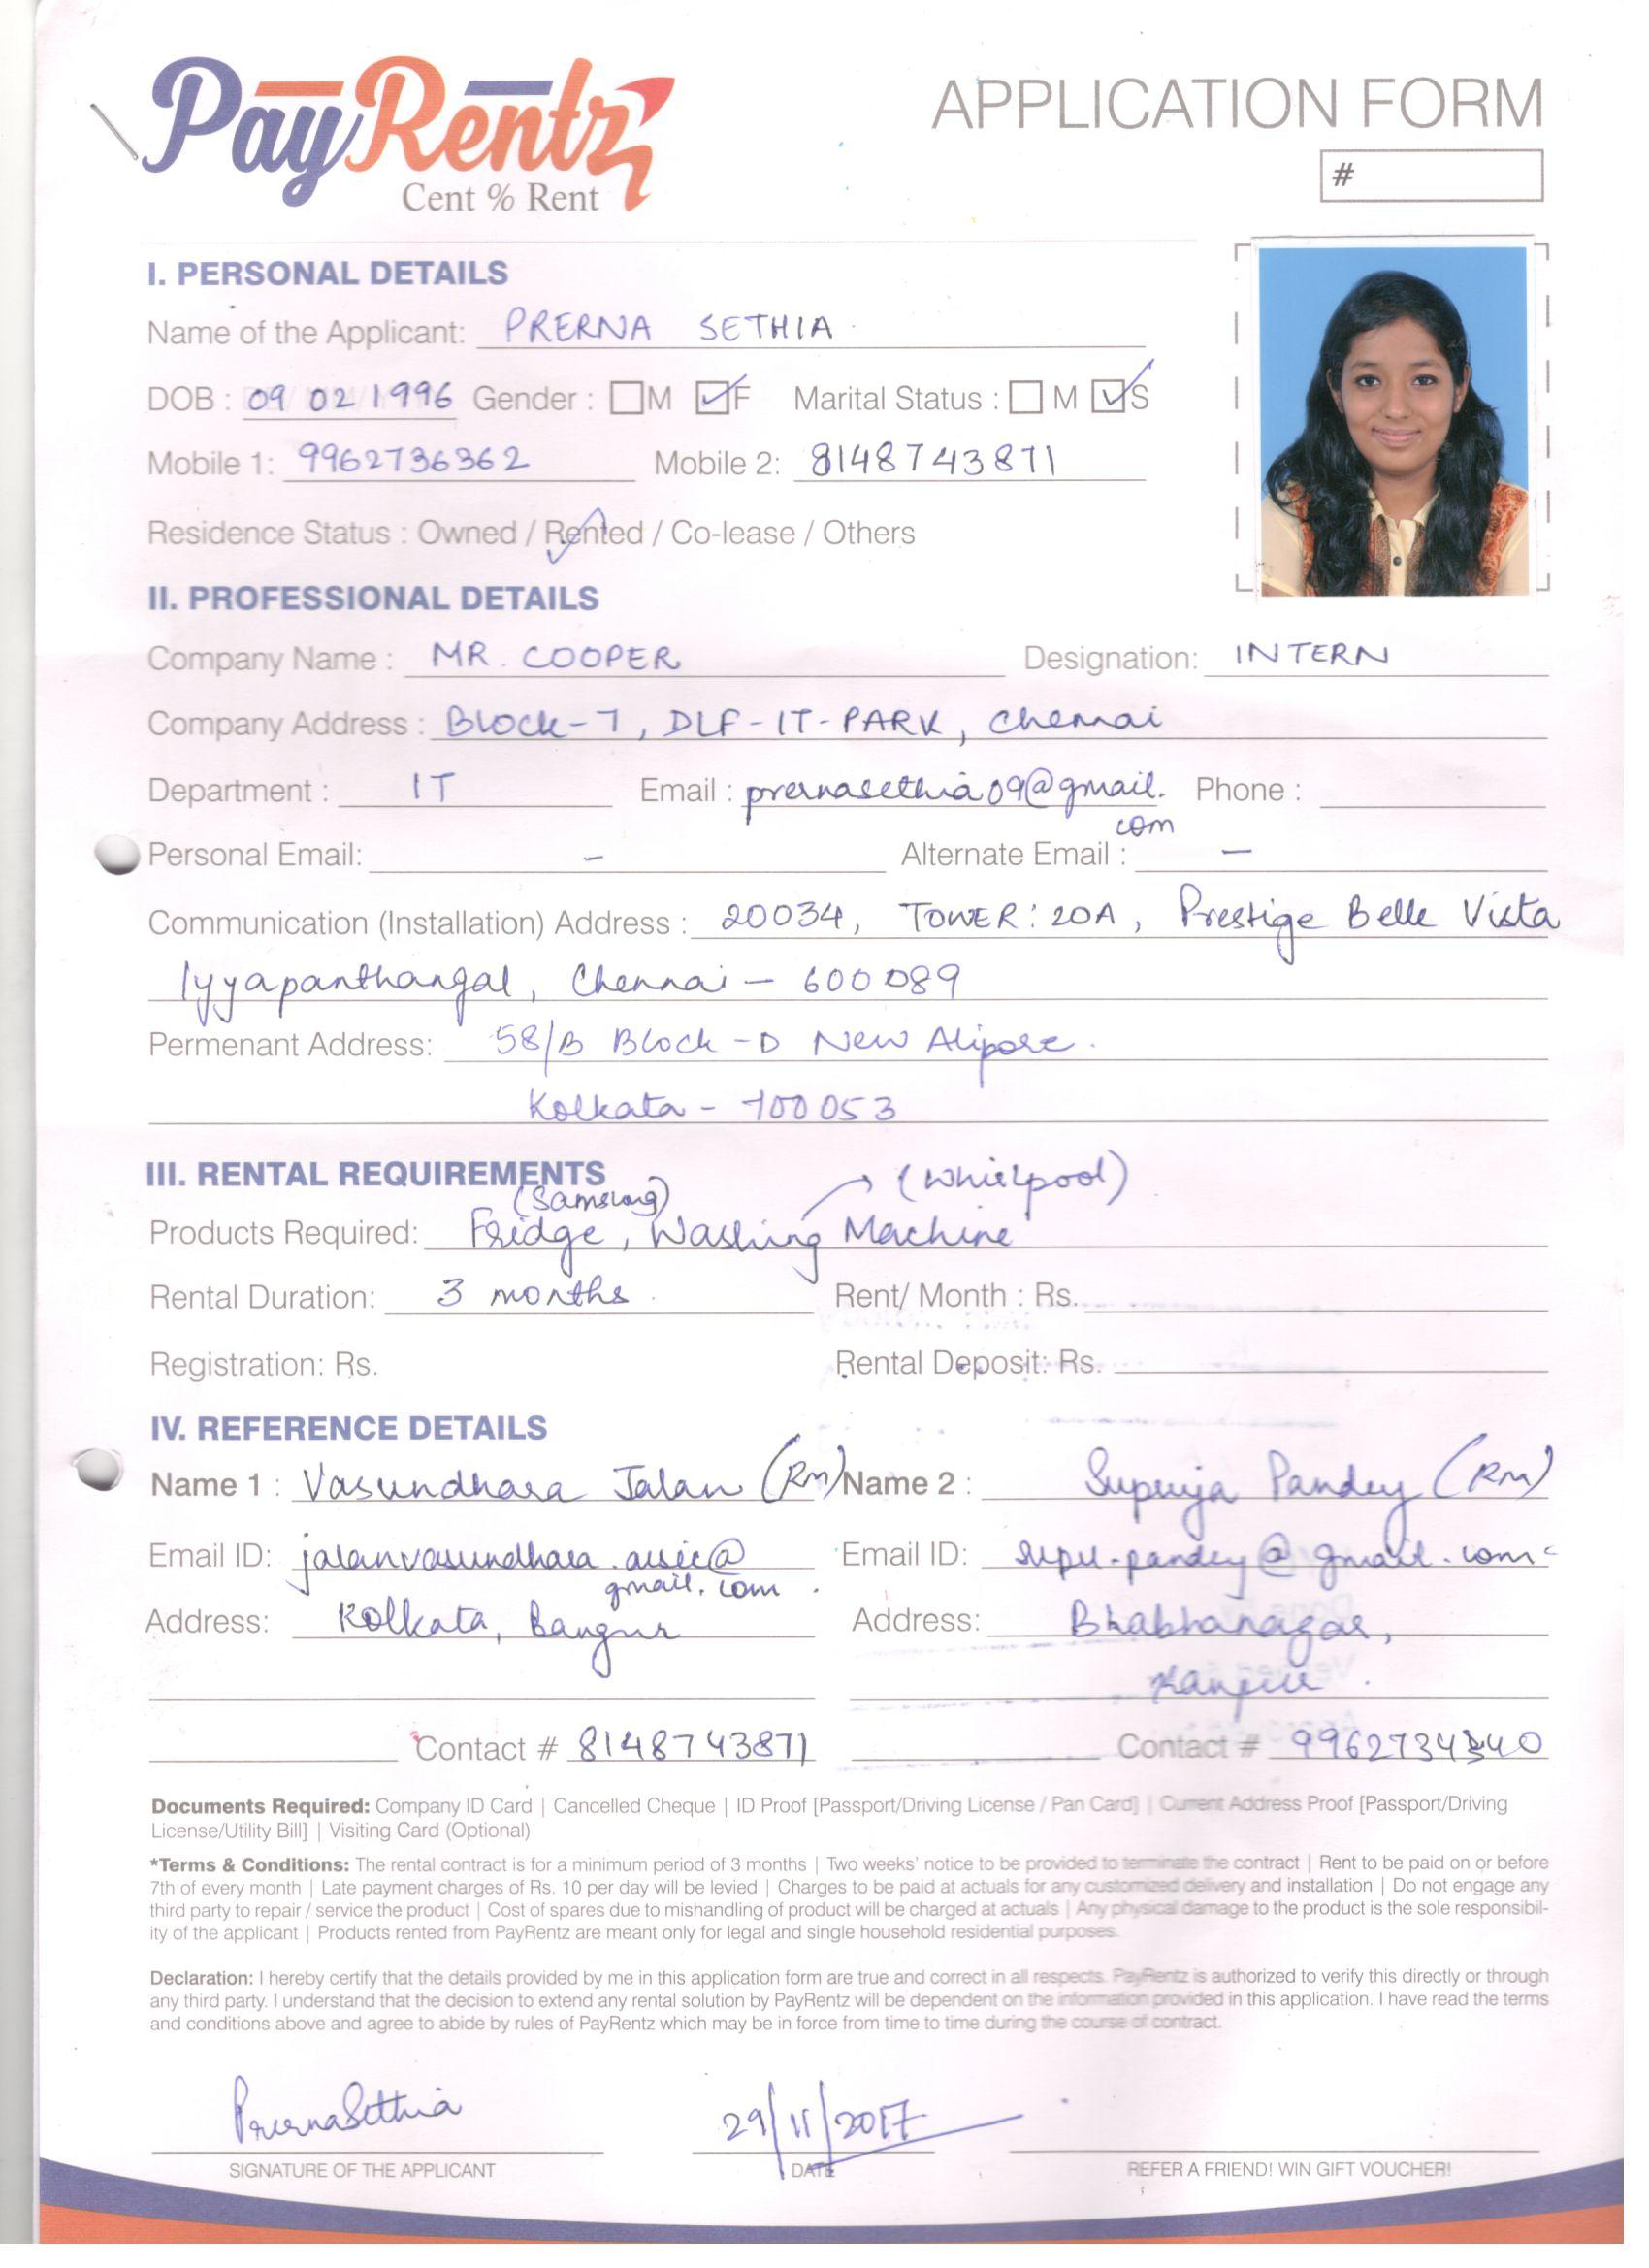 PayRentz
Cent % Rent
APPLICATION FORM
#
I. PERSONAL DETAILS
Name of the Applicant: PRERNA SETHIA
DOB : 09 02 1996 Gender : M F Marital Status : M S
Mobile 1: 9962736362 Mobile 2: 8148743871
Residence Status : Owned / Rented / Co-lease / Others
II. PROFESSIONAL DETAILS
Company Name : MR. COOPER Designation: INTERN
Company Address : Block-7, DLF-IT-PARK, Chennai
Department : IT Email : prernasethia09@gmail. Phone :
com
Personal Email: - Alternate Email : -
Communication (Installation) Address : 20034, TOWER: 20A, Prestige Belle Vista
Iyyapanthangal, Chennai - 600089
Permenant Address: 58/B Block-D New Alipore.
Kolkata - 700053
III. RENTAL REQUIREMENTS
(Samsung) (Whirlpool)
Products Required: Fridge, Washing Machine
Rental Duration: 3 months. Rent/ Month : Rs.
Registration: Rs. Rental Deposit: Rs.
IV. REFERENCE DETAILS
Name 1 : Vasundhara Jalan (Rm) Name 2 : Pandey (Rm)
Email ID: @ Email ID: supu.pandey@gmail.com
gmail.com.
Address: Kolkata, Bangur Address:
Kanpur.
Contact # 8148743871 Contact #
Documents Required: Company ID Card | Cancelled Cheque | ID Proof [Passport/Driving License / Pan Card] | Current Address Proof [Passport/Driving
License/Utility Bill] | Visiting Card (Optional)
*Terms & Conditions: The rental contract is for a minimum period of 3 months | Two weeks' notice to be provided to terminate the contract | Rent to be paid on or before
7th of every month | Late payment charges of Rs. 10 per day will be levied | Charges to be paid at actuals for any customized delivery and installation | Do not engage any
third party to repair / service the product | Cost of spares due to mishandling of product will be charged at actuals | Any physical damage to the product is the sole responsibil-
ity of the applicant | Products rented from PayRentz are meant only for legal and single household residential purposes.
Declaration: I hereby certify that the details provided by me in this application form are true and correct in all respects. PayRentz is authorized to verify this directly or through
any third party. I understand that the decision to extend any rental solution by PayRentz will be dependent on the information provided in this application. I have read the terms
and conditions above and agree to abide by rules of PayRentz which may be in force from time to time during the course of contract.
PrernaSethia 29/11/2017
SIGNATURE OF THE APPLICANT DATE REFER A FRIEND! WIN GIFT VOUCHER!